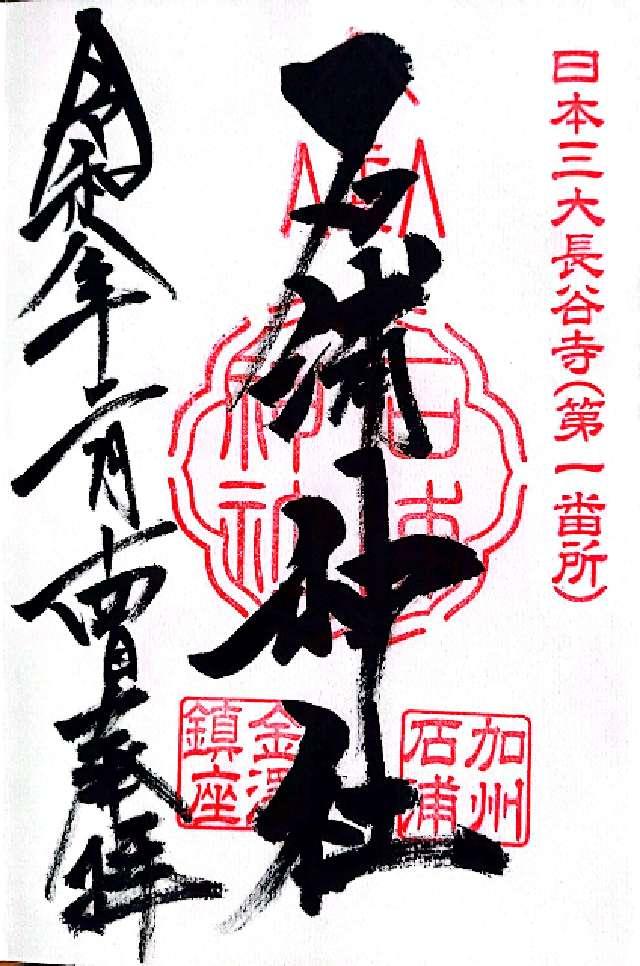 日本三大長谷寺(第一番所)
石浦神社
加州
石浦
石浦
神社
金澤
鎮座
令和 年二月 日奉拝